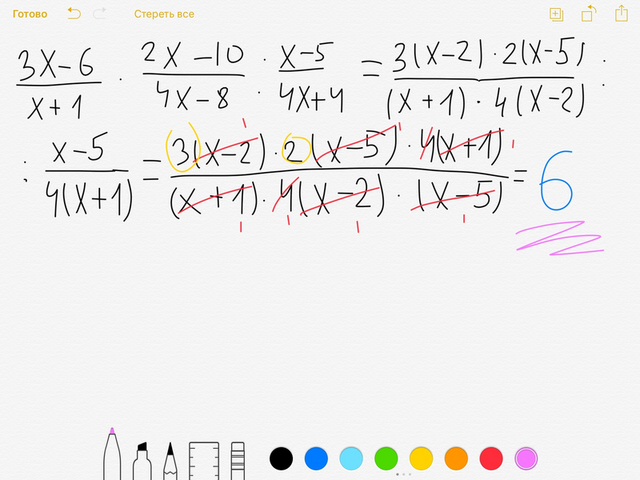 Готово Стереть все
(3x-6)/(x+1) · (2x-10)/(4x-8) · (x-5)/(4x+4) = (3(x-2) · 2(x-5))/((x+1) · 4(x-2)) :
: (x-5)/(4(x+1)) = (3(x-2) · 2(x-5) · 4(x+1))/((x+1) · 4(x-2) · (x-5)) = 6